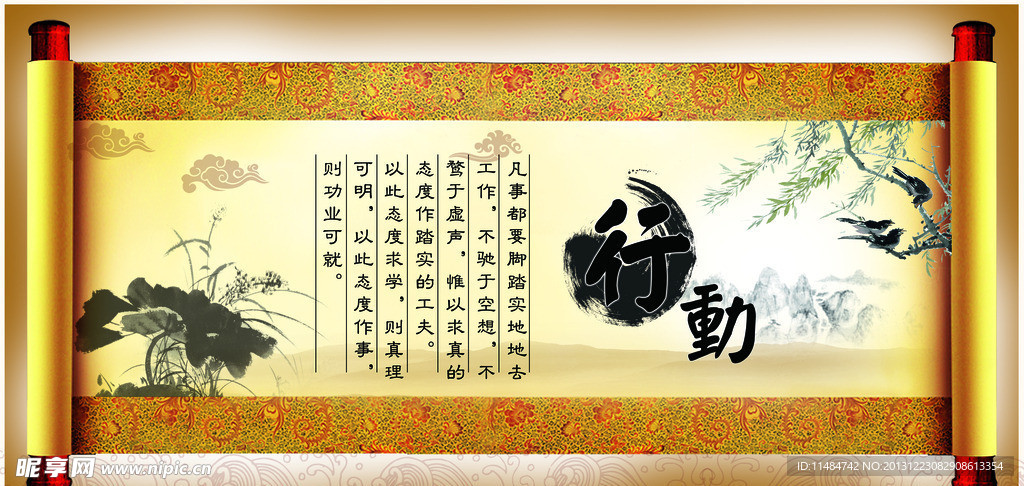 行動
凡事都要脚踏实地地去
工作，不驰于空想，不
骛于虚声，惟以求真的
态度作踏实的工夫。
以此态度求学，则真理
可明，以此态度作事，
则功业可就。
昵享网 www.nipic.cn
ID:11484742 NO:20131223082908613354